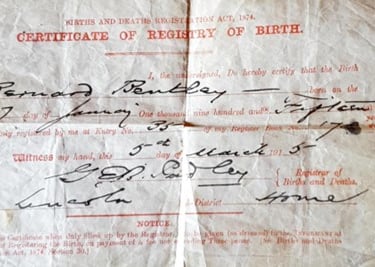 BIRTHS AND DEATHS REGISTRATION ACT, 1874.
CERTIFICATE OF REGISTRY OF BIRTH.
I, the undersigned, Do hereby certify that the Birth
Bernard Bentley born on the
7 day of January One thousand nine hundred and Fifteen
registered by me at Entry No. 55 of my Register Book No. 17
Witness my hand, this 5th day of March 1915
Registrar of
Births and Deaths.
Lincoln -District Home
NOTICE.
Certificate when only filled up by the Registrar,
of Registering the Birth, on payment of a fee not exceeding Three pence. (See Births and Deaths
Act, 1874, Section 30.)